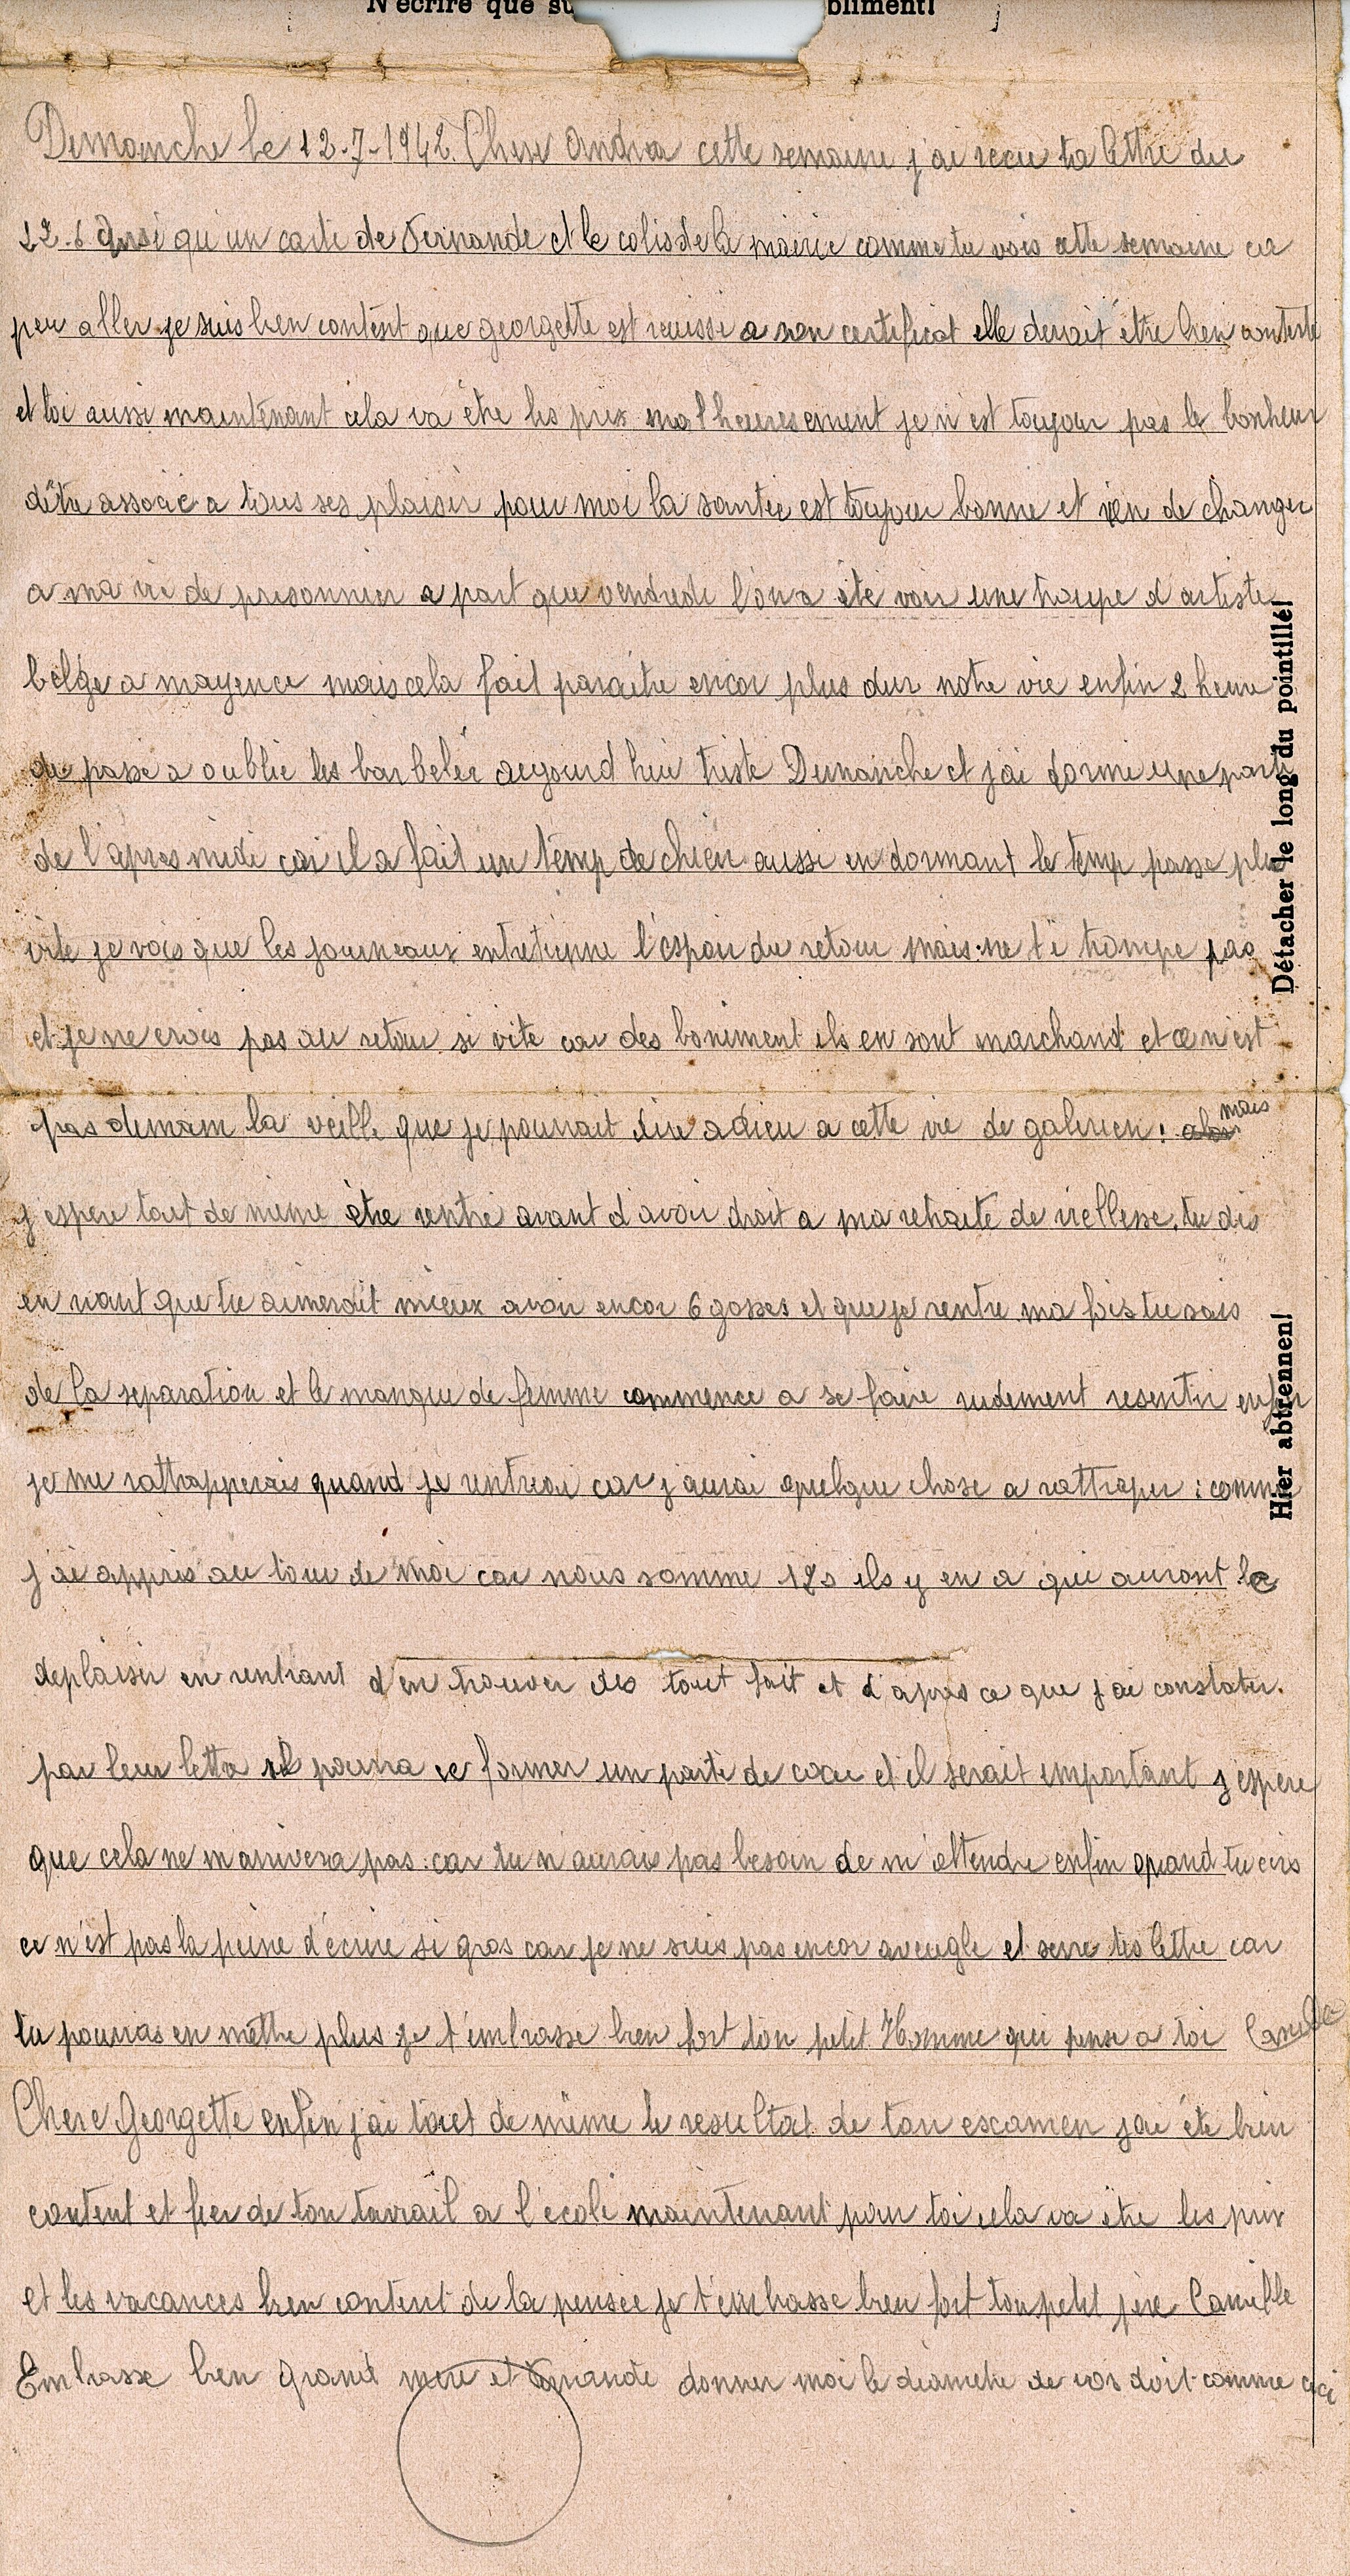 N'écrire que su bliment!
Dimanche le 12-7-1942. Chere Andrea cette semaine j'ai recu ta lettre du
12-6 ainsi qu'un carte de Fernande et le colis de la mairie comme tu vois cette semaine ca
peu aller je suis bien content que georgette est reussi a son certificat elle devait être bien contente
et toi aussi maintenant cela va être les prix malheuresement je n'est toujour pas le bonheur
d'être associe a tous ses plaisir pour moi la santée est toujour bonne et rien de changer
a ma vie de prisonnier a part que vendredi l'on a été voir une troupe d'artiste
belge a mayence mais cela fait paraitre encor plus dur notre vie enfin 2 heure
de passe a oublie les barbelée aujourd hui triste Dimanche et j'ai dormi une parti
de l'apres midi car il a fait un temp de chien aussi en dormant le temp passe plus
vite je vois que les journeaux entretienne l'espoir du retour mais ne t'i trompe pas
et je ne crois pas au retour si vite car des boniment ils en sont marchand et ce n'est
pas demain la veille que je pourrait dire adieu a cette vie de galerien! mais
j'espere tout de même être rentré avant d'avoir droit a ma retraite de viellesse. tu dis
en riant que tu aimerait mieux avoir encor 6 gosses et que je rentre ma fois tu sais
de la separation et le manque de femme commence a se faire rudement resentir enfin
je me rattrapperais quand je rentrerai car j'aurai quelque chose a rattraper : comme
j'ai appris au tour de moi car nous somme 180 ils y en a qui auront le
deplaisir en rentrant d'en trouver des tout fait et d'apres ce que j'ai constater.
par leur lettre il pourra ce former un parti de cocu et il serait important j'espere
que cela ne m'arrivera pas : car tu n'aurais pas besoin de m'attendre enfin quand tu ecris
ce n'est pas la peine d'écrire si gros car je ne suis pas encor aveugle et serre tes lettre car
tu pourras en mettre plus je t'embrasse bien fort ton petit Homme qui pense a toi Camille
Chere Georgette enfin j'ai tout de même le resultat de ton escamen j'ai été bien
content et fier de ton travail a l'école maintenant pour toi cela va être les prix
et les vacances bien content de la pensée je t'embrasse bien fort ton petit père Camille
Embrasse bien grand mere et Fernande donner moi le diametre de vos doit comme ceci
Détacher le long du pointillé!
Hier abtrennen!